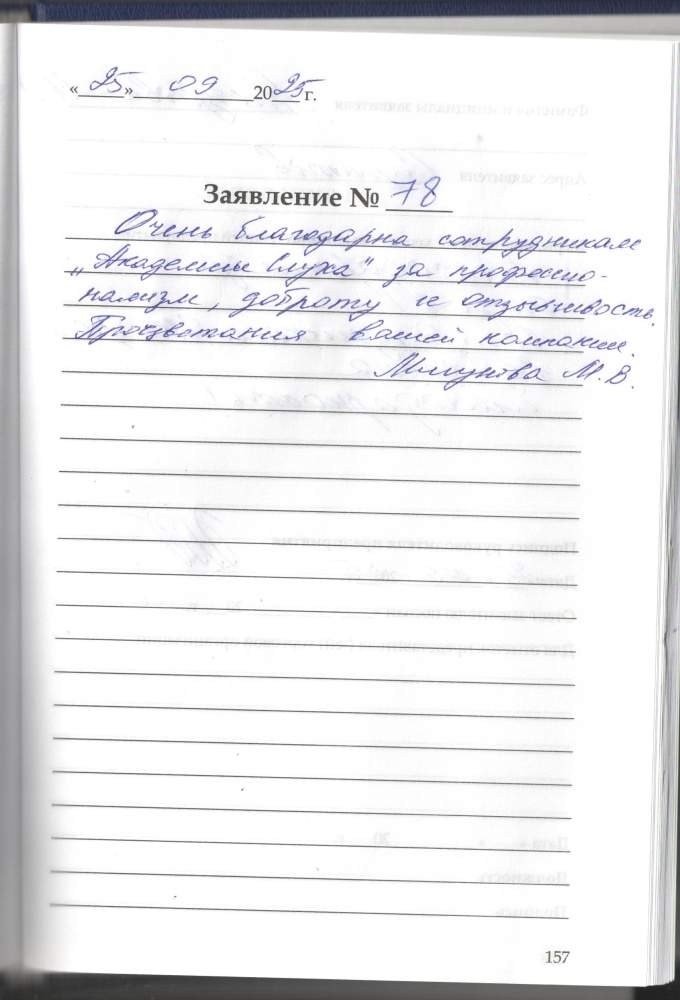 «25» 09 2025 г.
Заявление № 78
Очень благодарна сотрудникам
„Академии Слуха" за профессио-
нализм, доброту и отзывчивость.
Процветания вашей компании.
М.В.
157